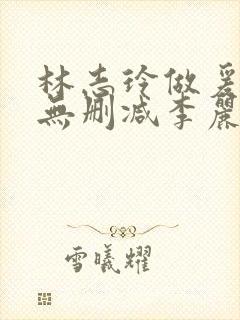 林志玲做爰
無删减李麗
雪曦耀